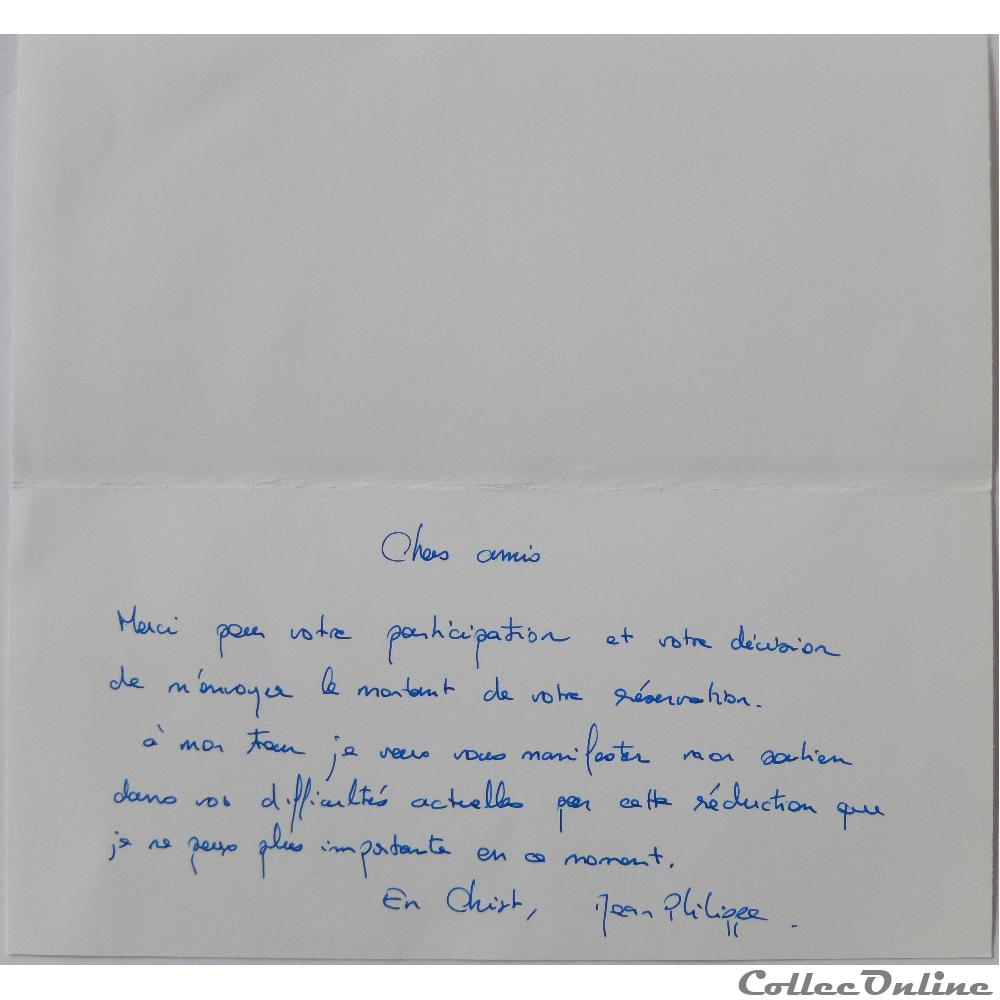 Chers amis
Merci pour votre participation et votre décision
de m'envoyer le montant de votre réservation.
à mon tour je veux vous manifester mon soutien
dans vos difficultés actuelles par cette réduction que
je ne peux plus importante en ce moment.
En Christ, Jean Philippe.
CollecOnline